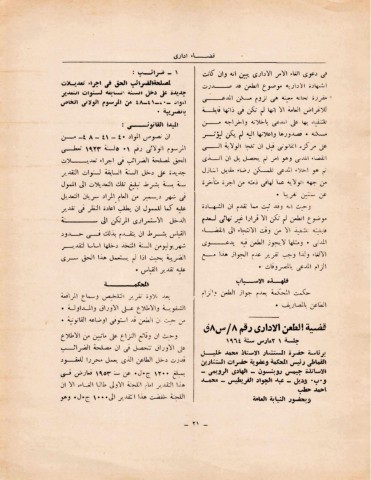 قضاء ادارى
هى دعوى الغاء الأمر الادارى يبين انه وان كانت
الشهادة الادارية موضوع الطعن قد صدرت
مقررة نجابه معينه هى نزوم من المدعى
للأعراض العامة الا انها لم تكن فى ذاتها قابلة
للتنفيذ بها على المدعى باخلائه واخراجه من
فصدورها واعلانها اليه لم يكن ليؤثر
القضاء المدنى وهو امر لم يحصل بل ان الذى
تم هو اخلاء المدعى للمسكن رضاء مقابل التنازل
عن جهة الولاية عما لها فى ذمته من أجرة متأخرة
عن سنتين تقريبا .
وحيث انه وقد ثبت مما تقدم ان الشهادة
موضوع الطعن لم تكن الا قرارا غير نهائى لعدم
المدنى ومثلها لا يجوز الطعن فيه بدعوى
الالغاء ولذا وجب تقرير عدم الجواز هذا مع
الزام المدعى بالمصروفات .
فلهذه الاسباب
حكمت المحكمة بعدم جواز الطعن والزام
الطاعن بالمصاريف .
قضية الطعن الادارى رقم ٨/س٨ق
جلسة ٢١ مارس سنة ١٩٦٤
برئاسة حضرة المستشار الاستاذ محمد خليل
القماطى رئيس المحكمة وعضوية حضرات المستشارين
الاساتذة جيمس روبنسون . الهادى الرويمى .
و . ب . وديل . عبد الجواد الفريطيس . محمد
احمد خطب
وبحضور النيابة العامة
١ - ضرائب :
لمصلحة الضرائب الحق فى اجراء تعديلات
جديدة على دخل السنة السابقة لسنوات التقدير
المواد ٤٠-٤١-٤٨ من المرسوم الولائى الخاص
بالضريبة .
المبدأ القانونى :
ان نصوص المواد ٤٠-٤١-٤٨ من
المرسوم الولائى رقم ٥٠١ لسنة ١٩٢٣ تعطى
الحق لمصلحة الضرائب فى اجراء تعديلات
جديدة على دخل السنة السابقة لسنوات التقدير
سنة بسنة بشرط تبليغ تلك التعديلات الى الممول
فى شهر ديسمبر من العام المراد سريان التعديل
عليه كما للممول ان يطلب اعادة النظر فى تقدير
الدخل الاستمرارى المرتكن الى
القياس بشرط ان يتقدم بذلك فى حدود
شهر يونيو من السنة المتخذ دخلها أساسا لتقدير
الضريبة بحيث اذا لم يستعمل هذا الحق سرى
عليه تقدير القياس .
المحكمة
بعد تلاوة تقرير التلخيص وسماع المرافعة
الشفوية والاطلاع على الأوراق والمداولة .
من حيث ان الطعن قد استوفى أوضاعه القانونية .
وحيث ان وقائع النزاع على ما يبين من الاطلاع
على الأوراق تتحصل فى ان مصلحة الضرائب
قدرت دخل الطاعن الذى يعمل محررا للعقود
بمبلغ ١٢٠٠ ج.ل. عن سنة ١٩٥٣ فعارض فى
هذا التقدير أمام اللجنة الأولى طالبا الغاءه الا أن
اللجنة خفضت هذا التقدير الى ١٠٠٠ ج.ل. ومن
- ٢٦ -